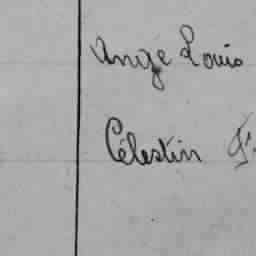 Ange Louis
Célestin